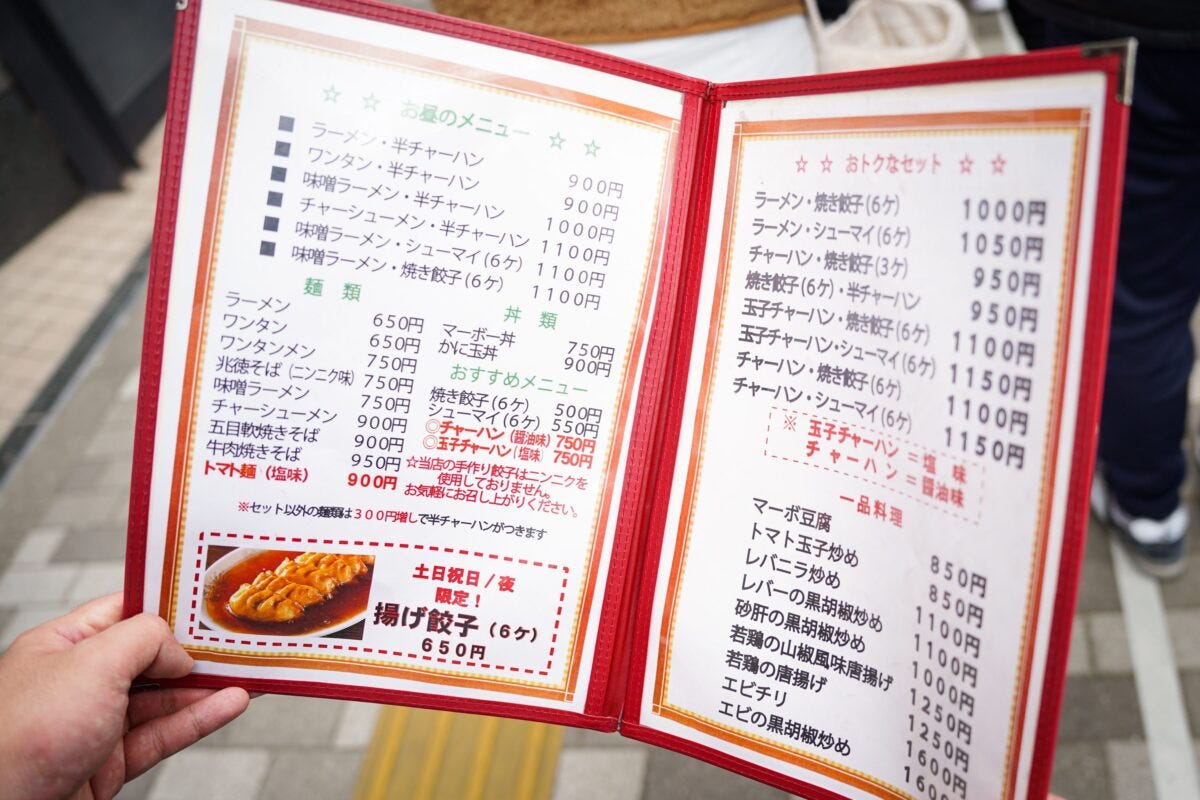 ☆ ☆ お昼のメニュー ☆ ☆
■ ラーメン・半チャーハン 900円
■ ワンタン・半チャーハン 900円
■ 味噌ラーメン・半チャーハン 1000円
■ チャーシューメン・半チャーハン 1100円
■ 味噌ラーメン・シューマイ(6ケ) 1100円
■ 味噌ラーメン・焼き餃子(6ケ) 1100円
麺 類
ラーメン 650円
ワンタン 650円
ワンタンメン 750円
兆徳そば(ニンニク味) 750円
味噌ラーメン 750円
チャーシューメン 900円
五目軟焼きそば 900円
牛肉焼きそば 950円
トマト麺(塩味) 900円
丼 類
マーボー丼 750円
かに玉丼 900円
おすすめメニュー
焼き餃子(6ケ) 500円
シューマイ(6ケ) 550円
◎チャーハン(醤油味) 750円
◎玉子チャーハン(塩味) 750円
☆当店の手作り餃子はニンニクを
使用しておりません。
お気軽にお召し上がりください。
※セット以外の麺類は300円増しで半チャーハンがつきます
土日祝日/夜
限定!
揚げ餃子(6ケ)
650円
☆ ☆ おトクなセット ☆ ☆
ラーメン・焼き餃子(6ケ) 1000円
ラーメン・シューマイ(6ケ) 1050円
チャーハン・焼き餃子(3ケ) 950円
焼き餃子(6ケ)・半チャーハン 950円
玉子チャーハン・焼き餃子(6ケ) 1100円
玉子チャーハン・シューマイ(6ケ) 1150円
チャーハン・焼き餃子(6ケ) 1100円
チャーハン・シューマイ(6ケ) 1150円
※ 玉子チャーハン=塩 味
チャーハン=醤油味
一品料理
マーボ豆腐 850円
トマト玉子炒め 850円
レバニラ炒め 1100円
レバーの黒胡椒炒め 1100円
砂肝の黒胡椒炒め 1000円
若鶏の山椒風味唐揚げ 1250円
若鶏の唐揚げ 1250円
エビチリ 1600円
エビの黒胡椒炒め 1600